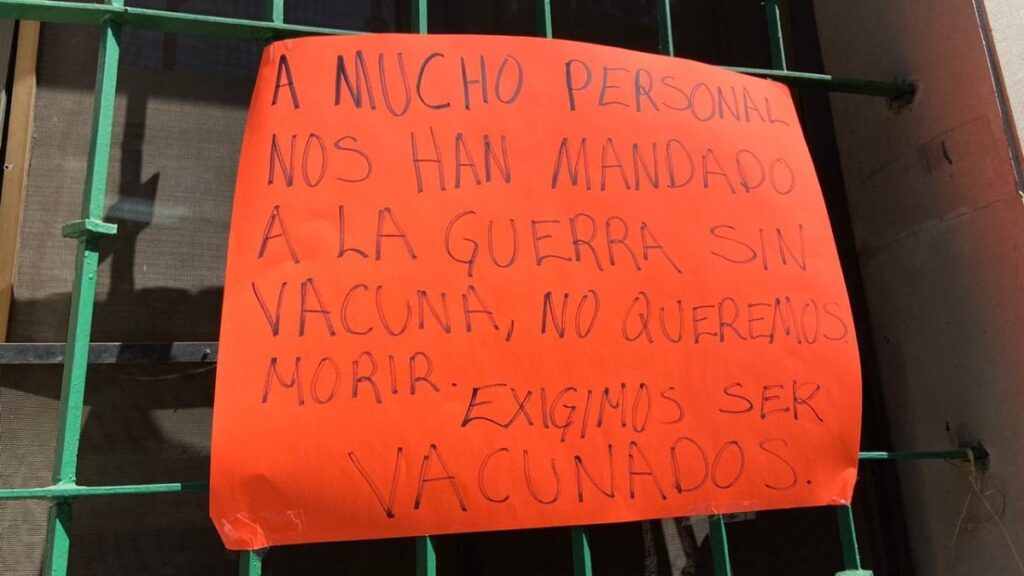 A MUCHO PERSONAL
NOS HAN MANDADO
A LA GUERRA SIN
VACUNA, NO QUEREMOS
MORIR. EXIGIMOS SER
VACUNADOS.